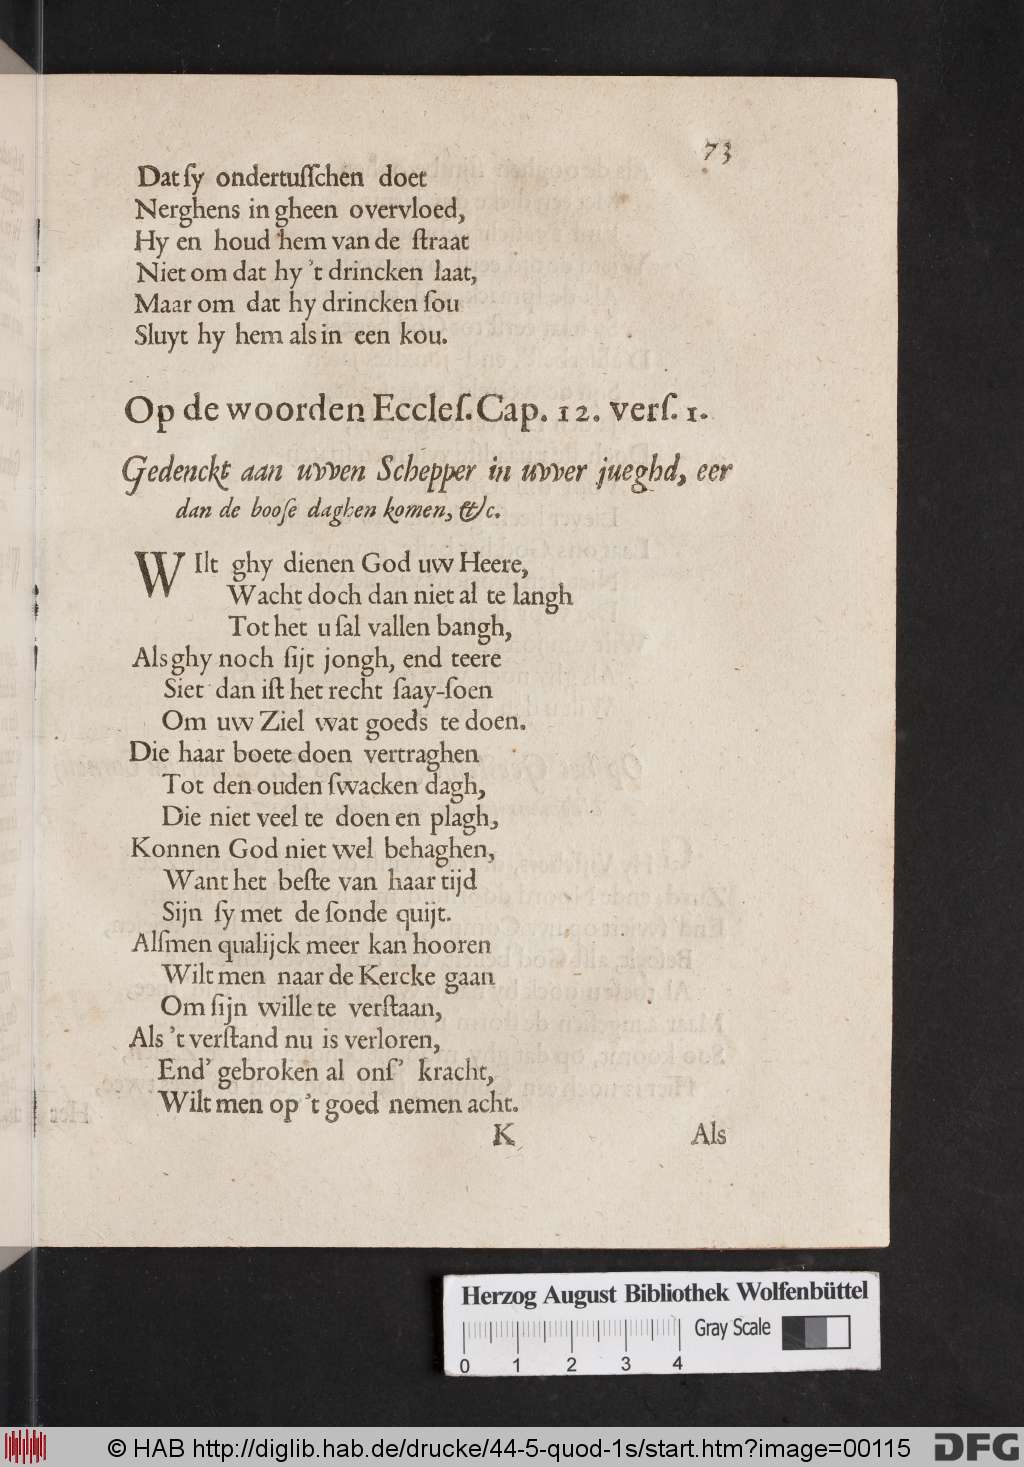 73
Dat ſy ondertuſſchen doet
Nerghens in gheen overvloed,
Hy en houd hem van de ſtraat
Niet om dat hy 't drincken laat,
Maar om dat hy drincken ſou
Sluyt hy hem als in een kou.
Op de woorden Eccleſ. Cap. 12. verſ. 1.
Gedenckt aan uvven Schepper in uvver jueghd, eer
dan de booſe daghen komen, &c.
WIlt ghy dienen God uw Heere,
Wacht doch dan niet al te langh
Tot het u ſal vallen bangh,
Als ghy noch ſijt jongh, end teere
Siet dan iſt het recht ſaay-ſoen
Om uw Ziel wat goeds te doen.
Die haar boete doen vertraghen
Tot den ouden ſwacken dagh,
Die niet veel te doen en plagh,
Konnen God niet wel behaghen,
Want het beſte van haar tijd
Sijn ſy met de ſonde quijt.
Alſmen qualijck meer kan hooren
Wilt men naar de Kercke gaan
Om ſijn wille te verſtaan,
Als 't verſtand nu is verloren,
End' gebroken al onſ' kracht,
Wilt men op 't goed nemen acht.
K Als
Herzog August Bibliothek Wolfenbüttel
Gray Scale
0 1 2 3 4
© HAB http://diglib.hab.de/drucke/44-5-quod-1s/start.htm?image=00115
DFG